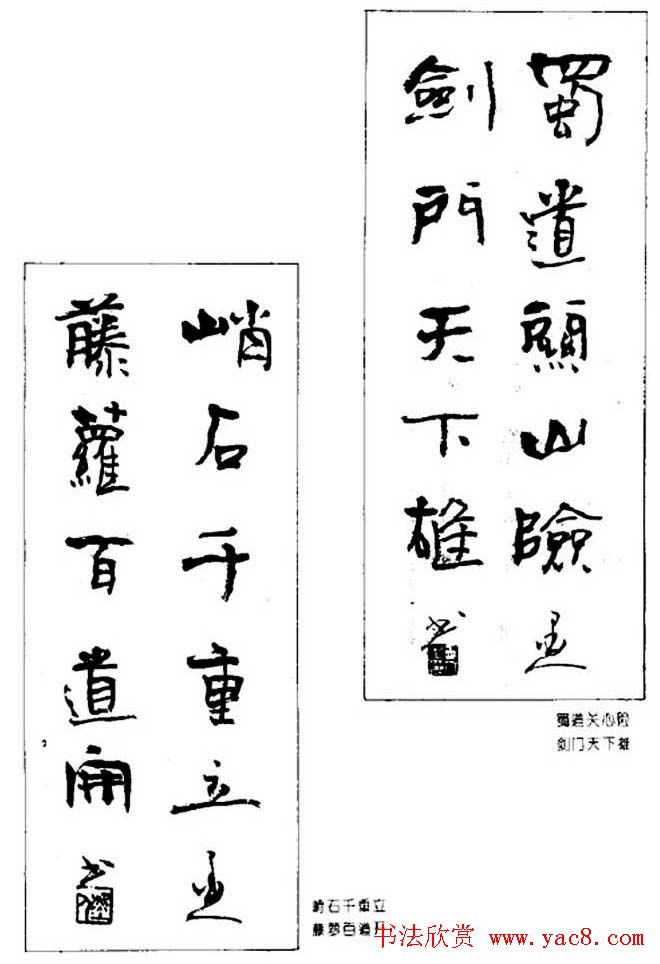 蜀道關山險
劍門天下雄
蜀道关心险
剑门天下雄
峭石千重立
藤蘿百道開
峭石千重立
藤萝百道开
书法欣赏 www.yac8.com